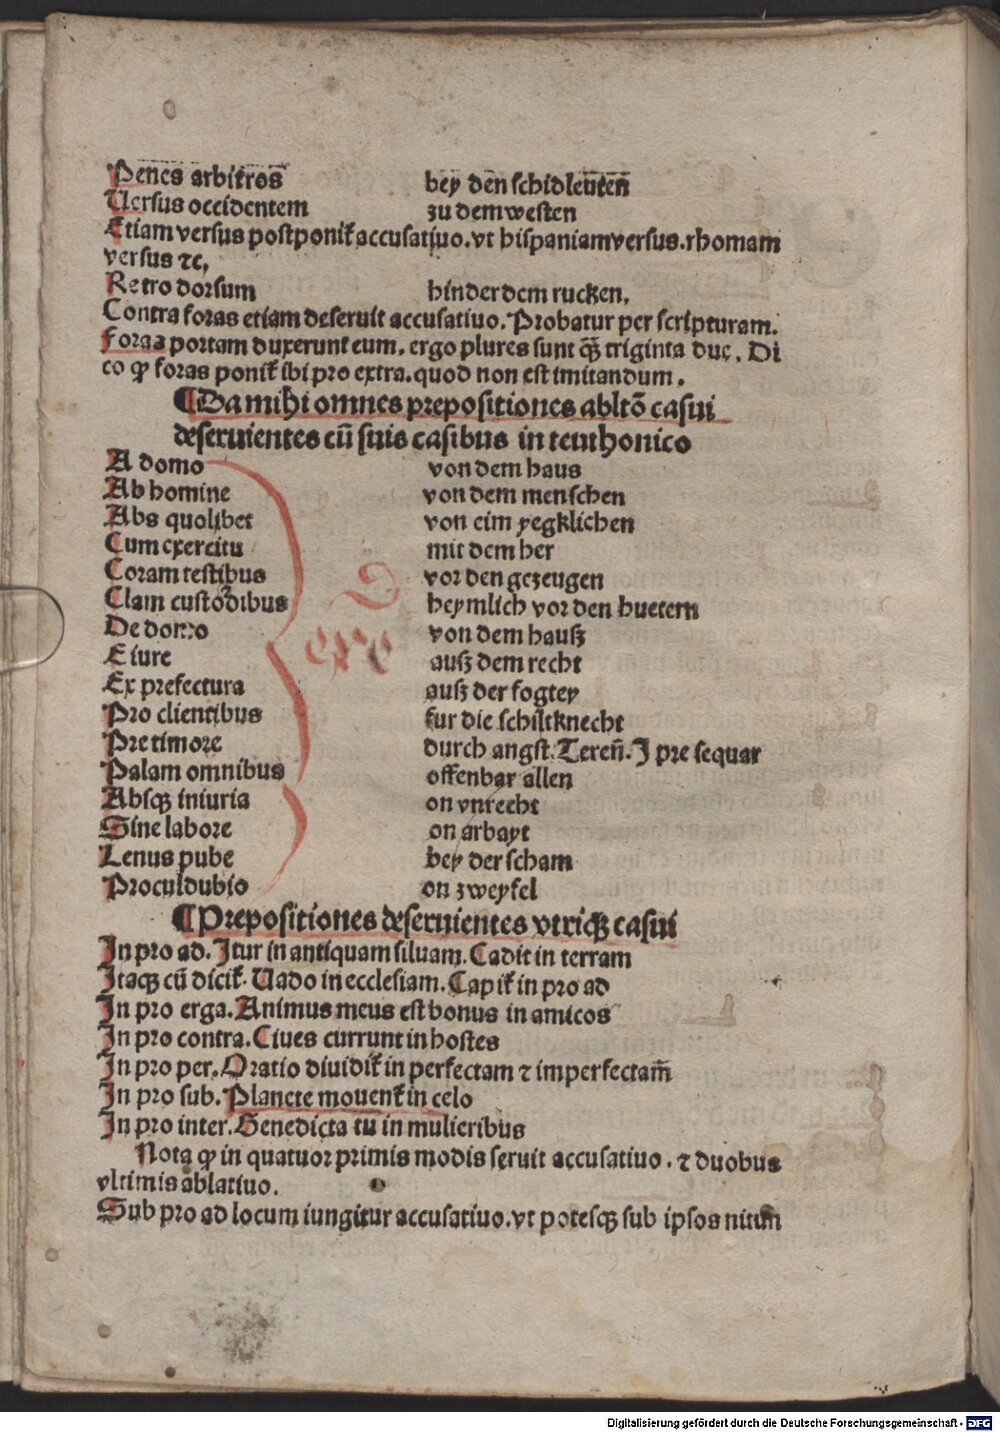 Penes arbitros̄ bey den schidleūten̄
Uersus occidentem zu dem westen
Etiam versus postponit᷑ accusatiuo. vt hispaniamversus. rhomam
versus ⁊c,
Retro dorsum hinder dem rucken.
Contra foras etiam deseruit accusatiuo. Probatur per scripturam.
foras portam duxerunt eum. ergo plures sunt qꝫ̄ triginta due. Di
co ꝙ foras ponit᷑ ibi pro extra. quod non est imitandum.
¶Da mihi omnes prepositiones abltō casui
deseruientes cū suis casibus in teuthonico
A domo von dem haus
Ab homine von dem menschen
Abs quolibet von eim yegklichen
Cum exercitu mit dem her
Coram testibus vor den gezeugen
Clam custodibus heymlich vor den huetern
De domo von dem hauß
E iure auß dem recht
Ex prefectura auß der fogtey
Pro clientibus fur die schiltknecht
Pre timore durch angst. Tereñ. J pre sequar
Palam omnibus offenbar allen
Absqꝫ iniuria on vnrecht
Sine labore on arbayt
Tenus pube bey der scham
Proculdubio on zweyfel
¶Prepositiones deseruientes vtriqꝫ casui
Jn pro ad. Jtur in antiquam siluam. Cadit in terram
Jtaqꝫ cū dicit᷑. Uado in ecclesiam. Capit᷑ in pro ad
Jn pro erga. Animus meus est bonus in amicos
Jn pro contra. Ciues currunt in hostes
Jn pro per. Oratio diuidit᷑ in perfectam ⁊ imperfectam̄
Jn pro sub. Planete mouent᷑ in celo
Jn pro inter. Benedicta tu in mulieribus
Nota ꝙ in quatuor primis modis seruit accusatiuo. ⁊ duobus
vltimis ablatiuo.
Sub pro ad locum iungitur accusatiuo. vt potesqꝫ sub ipsos
Digitalisierung gefördert durch die Deutsche Forschungsgemeinschaft - DFG